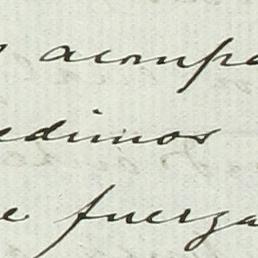 acompa
edimos
e fuerza